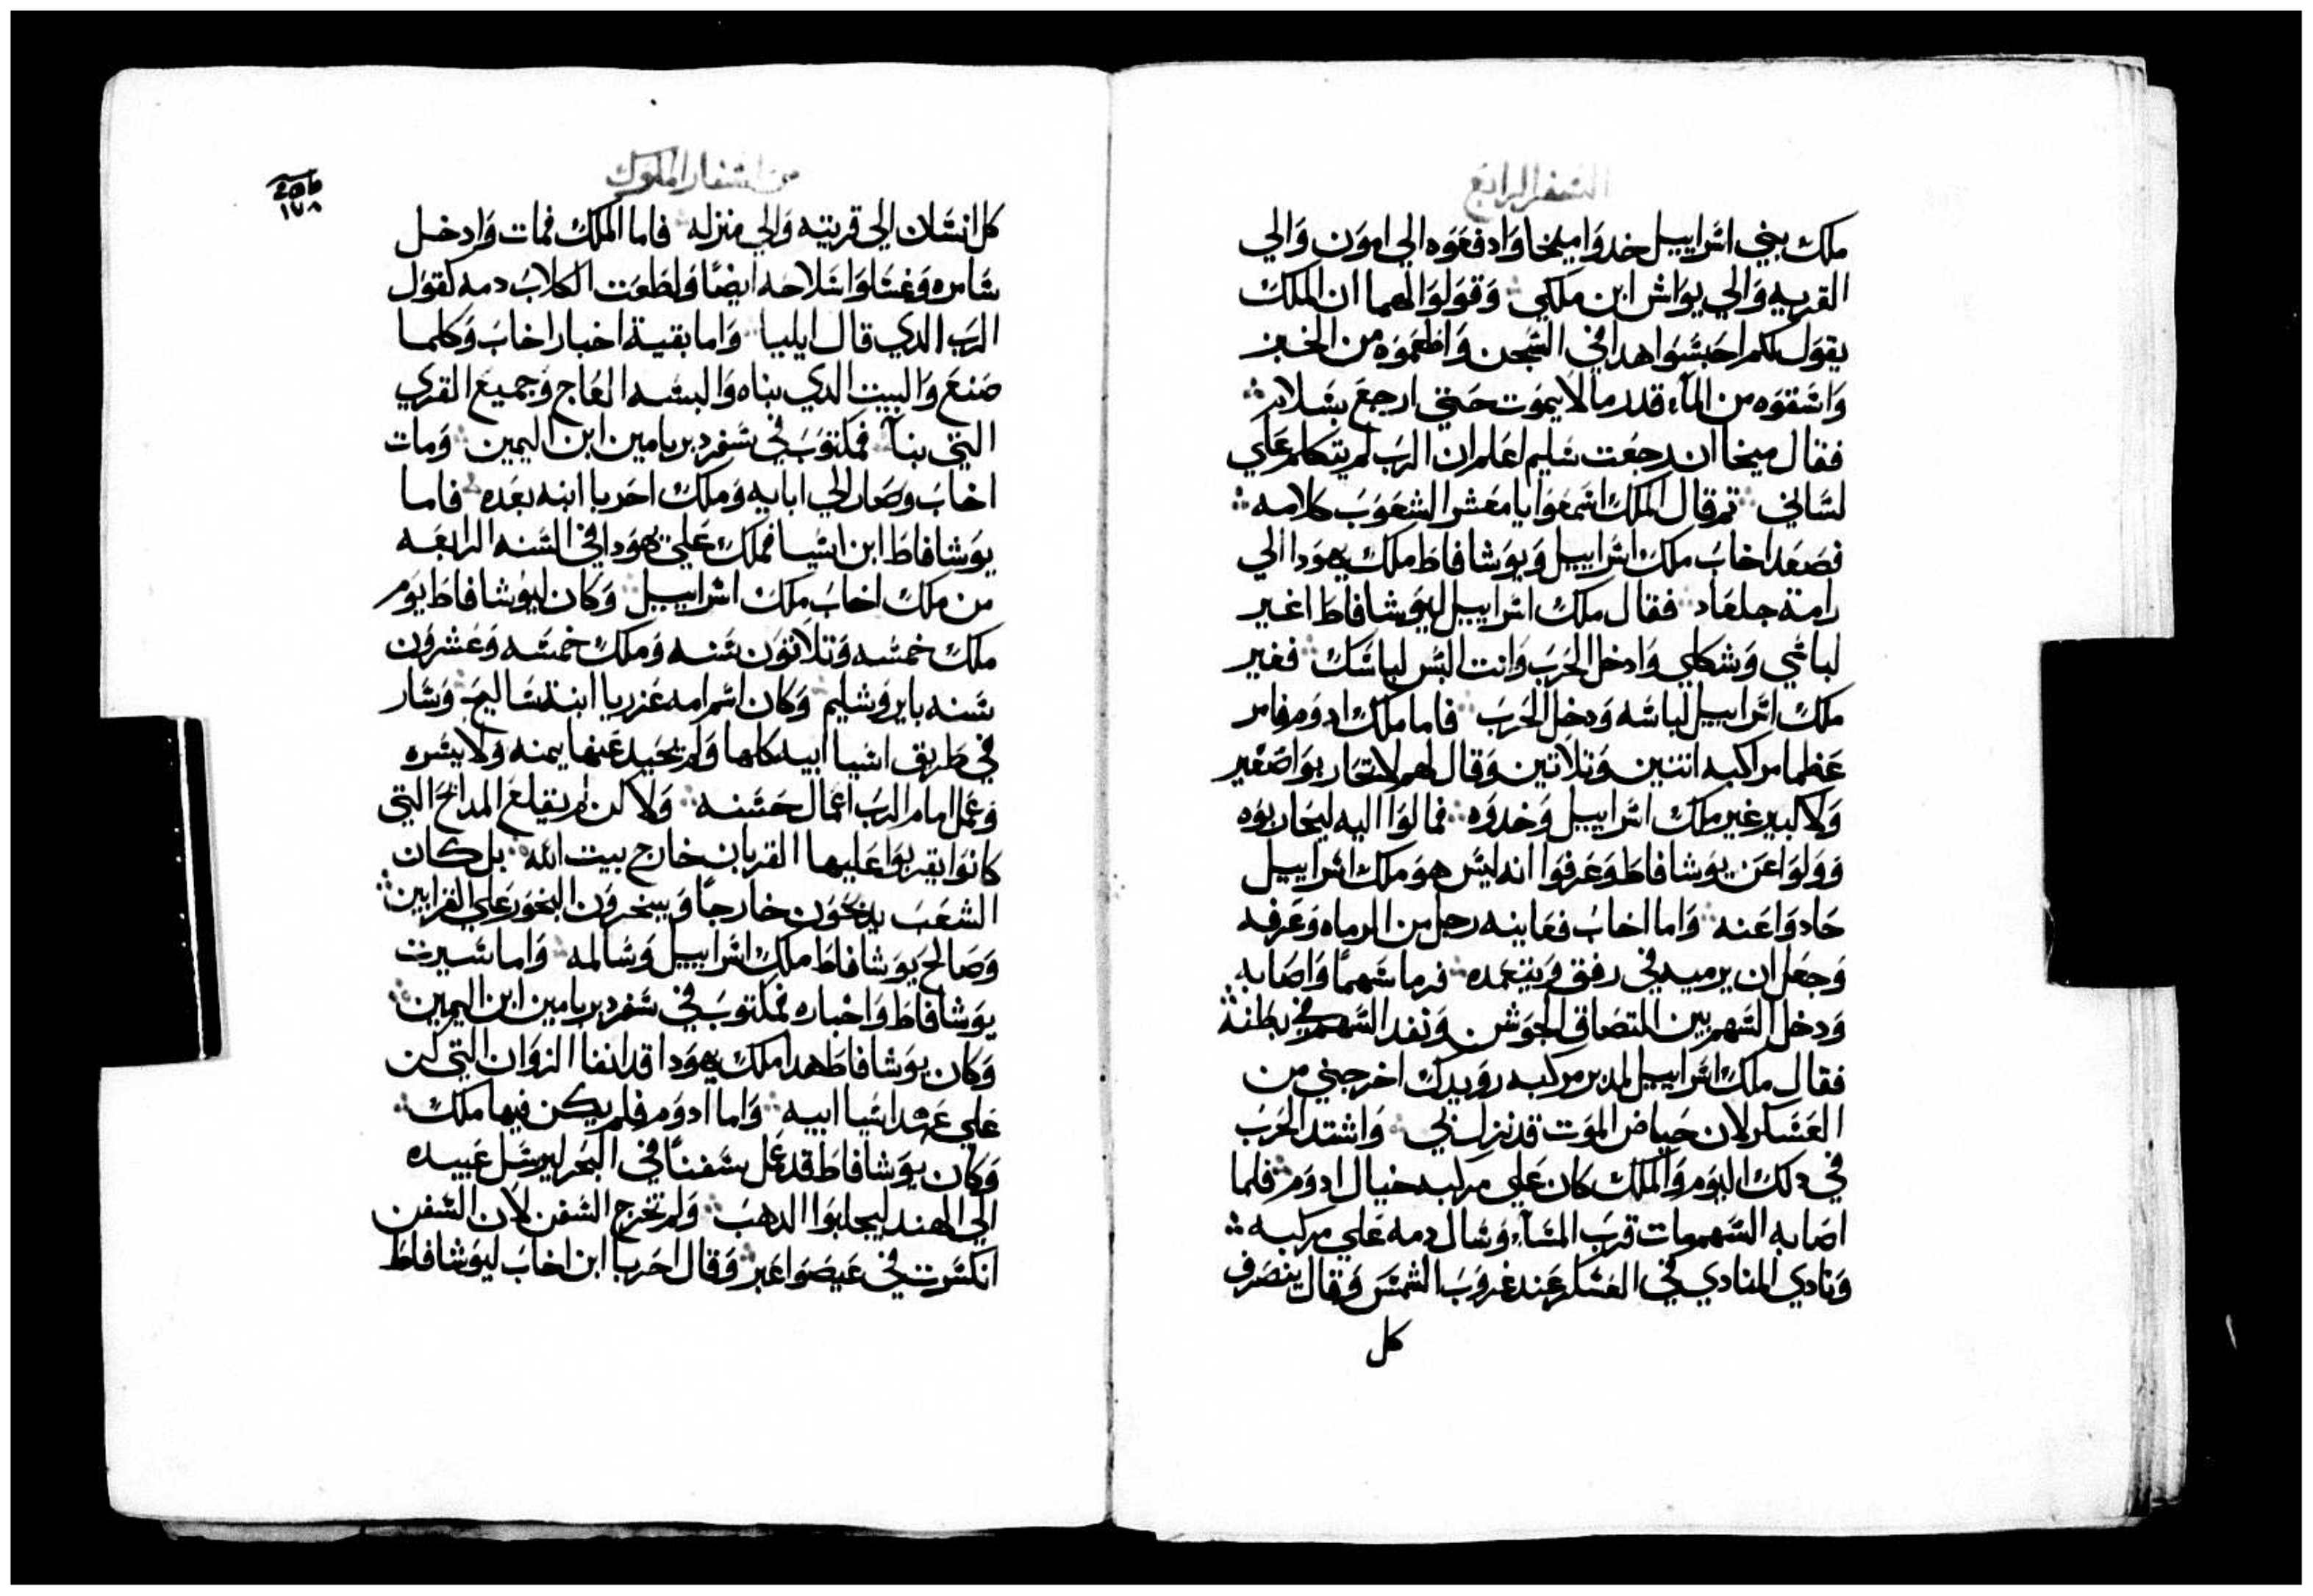 السفر الرابع
ملك بني اسراييل خدوا ميخا وادفعوه الي امون والي
القريه والي يواش ابن ملكي وقولوا لهما ان الملك
يقول لكم احبسوا هدا في السجن واطعموه من الخبز
واسقوه من الماء قدر ما لا يموت حتي ارجع بسلام
فقال ميخا ان رجعت سليم اعلم ان الرب لم يتكلم علي
لساني تم قال الملك اسمعوا يا معشر الشعوب كلامه
فصعد اخاب ملك اسراييل ويوشافاط ملك يهودا الي
رامة جلعاد فقال ملك اسراييل ليوشافاط اغير
لباسي وشكلي وادخل الحرب وانت البس لباسك فغير
ملك اسراييل لباسه ودخل الحرب فاما ملك ادوم فامر
عظما مراكبه اتنين وتلاتين وقال لهم لا تحاربوا صغير
ولا كبير غير ملك اسراييل وخدوه فمالوا اليه ليحاربوه
وولوا عن يوشافاط وعرفوا انه ليس هو ملك اسراييل
حادوا عنه واما اخاب فعاينه رجل من الرماه وعرفه
وجعل ان يرميه في رفق ويتعمده فرما سهما واصابه
ودخل السهم بين التصاق الجوشن ونفد السهم في بطنه
فقال ملك اسراييل لمدبر مركبه رويدك اخرجني من
العسكر لان حياض الموت قد نزل بي واشتد الحرب
في دلك اليوم والملك كان علي مركبه خيال ادوم فلما
اصابه السهم ومات قرب المساء وسال دمه علي مركبه
ونادي المنادي في العسكر عند غروب الشمس وقال ينصرف
كل
من اسفار الملوك
١٧٨
كل انسان الي قريته والي منزله فاما الملك فمات وادخل
سامره وغسلوا سلاحه ايضا ولطعت الكلاب دمه كقول
الرب الدي قال ايلييا واما بقية اخبار اخاب وكلما
صنع والبيت الدي بناه والبسه العاج وجميع القري
التي بنا فمكتوب في سفر دبريامين ابن اليمين ومات
اخاب وصار الي ابايه وملك احزيا ابنه بعده فاما
يوشافاط ابن اسيا فملك علي يهودا في السنه الرابعه
من ملك اخاب ملك اسراييل وكان ليوشافاط يوم
ملك خمسه وتلاتون سنه وملك خمسه وعشرون
سنه بايروشليم وكان اسم امه عزريا ابنة ساليم وسار
في طريق اسيا ابيه كلها ولم يحيد عنها يمنه ولا يسره
وعمل امام الرب اعمال حسنه ولاكن لم يقلع المدابح التي
كانوا يقربوا عليها القربان خارج بيت الله بل كان
الشعب يدبحون خارجا ويبخرون البخور علي القرابين
وصالح يوشافاط ملك اسراييل وسالمه واما سيرت
يوشافاط واخباره فمكتوب في سفر دبريامين ابن اليمين
وكان يوشافاط هدا ملك يهودا قد انفا الزوان التي كن
علي عهد اسيا ابيه واما ادوم فلم يكن فيها ملك
وكان يوشافاط قد عمل سفنا في البحر ليرسل عبيده
الي الهند ليجلبوا الدهب ولم تخرج السفن لان السفن
انكسرت في عيصوا غبر وقال احزيا ابن اخاب ليوشافاط